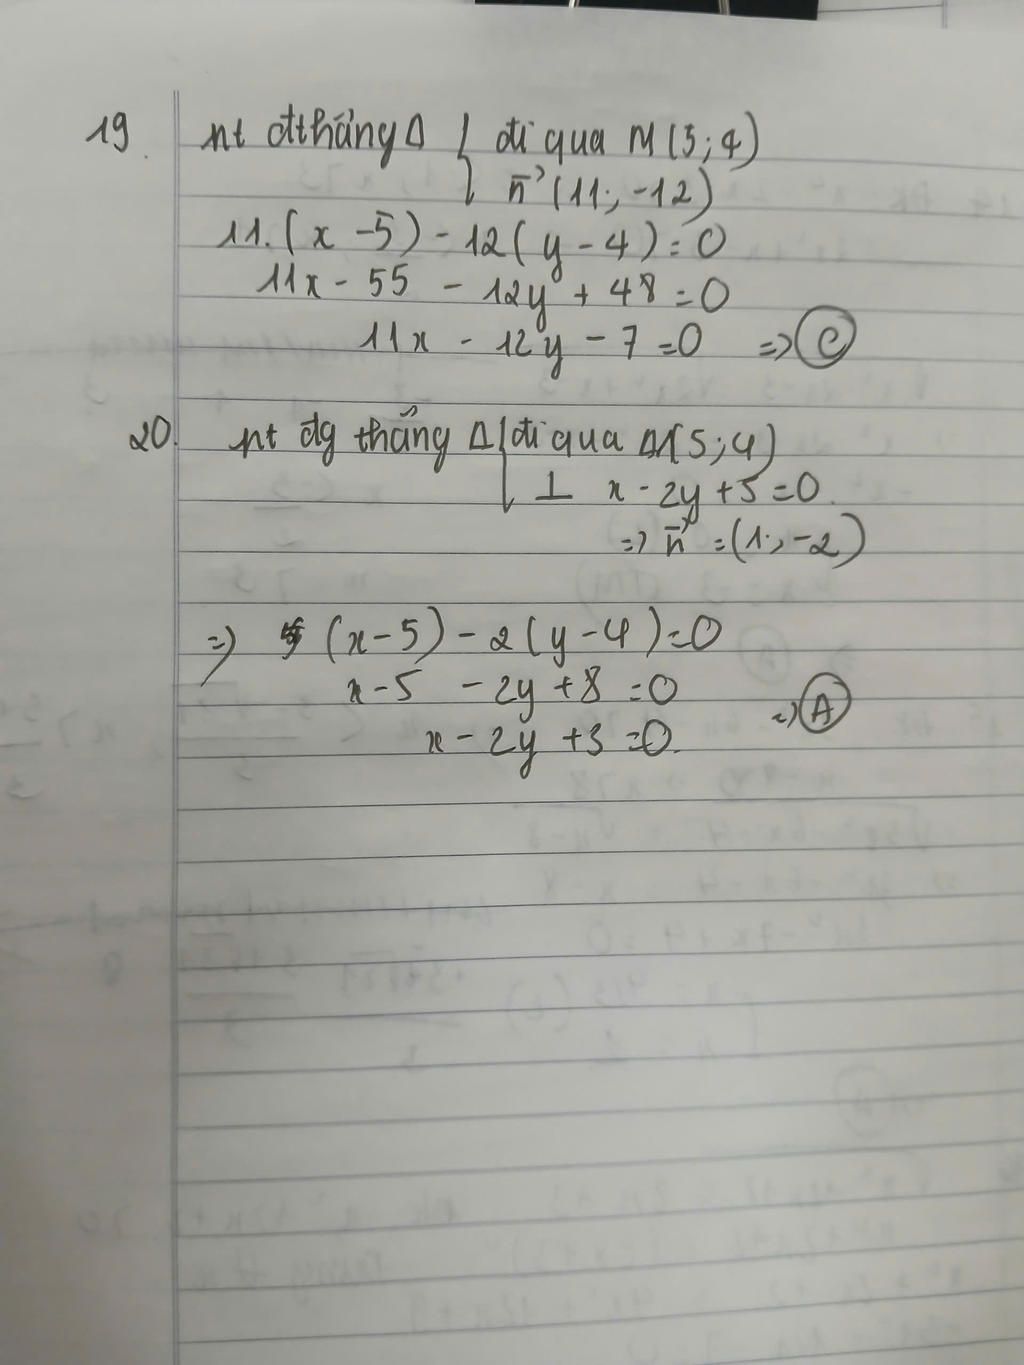 19. pt đthẳng Δ { đi qua M(5;4)
n⃗ (11; -12)
11.(x - 5) - 12(y - 4) = 0
11x - 55 - 12y + 48 = 0
11x - 12y - 7 = 0 => C
20. pt đg thẳng Δ { đi qua M(5;4)
⊥ x - 2y + 5 = 0
=> n⃗ = (1; -2)
=> (x - 5) - 2(y - 4) = 0
x - 5 - 2y + 8 = 0
=> A
x - 2y + 3 = 0